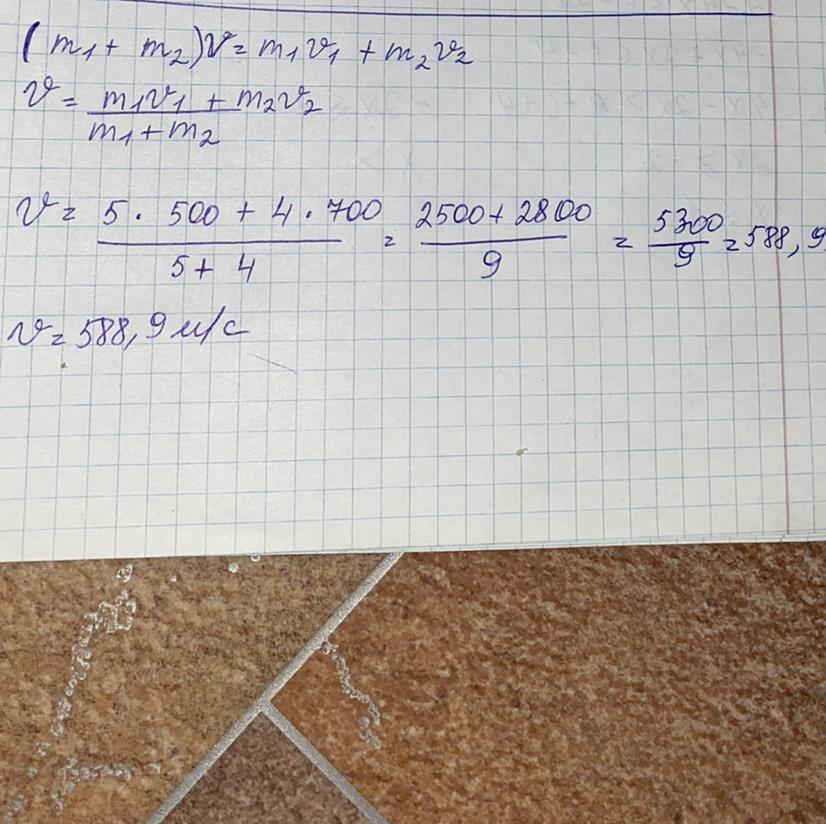 (m₁ + m₂)v = m₁v₁ + m₂v₂
v = (m₁v₁ + m₂v₂)/(m₁ + m₂)
v = (5 · 500 + 4 · 700)/(5 + 4) = (2500 + 2800)/9 = 5300/9 = 588,9
v = 588,9 м/с